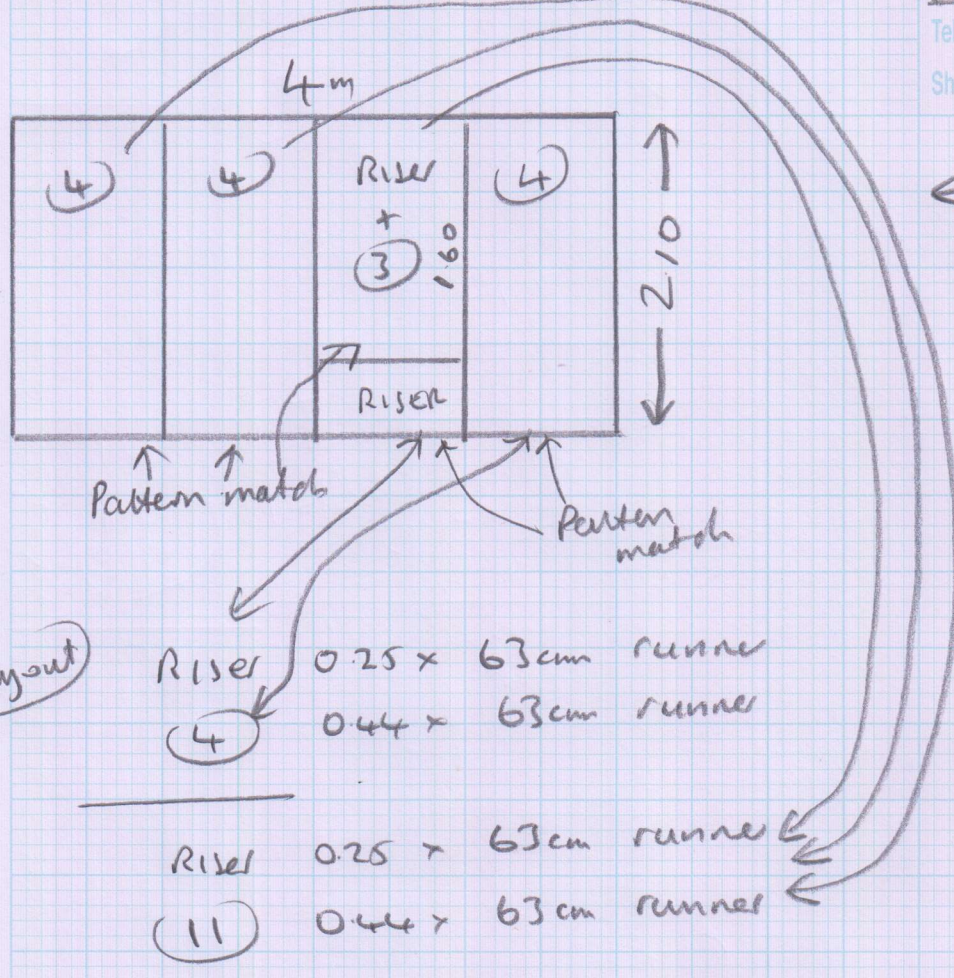 4m
4
4
Riser
+
3
1.60
4
2.10
RISER
Pattern match
Patten
match
Riser 0.25 x 63cm runner
4 0.44 x 63cm runner
Riser 0.25 x 63cm runner
11 0.44 x 63cm runner